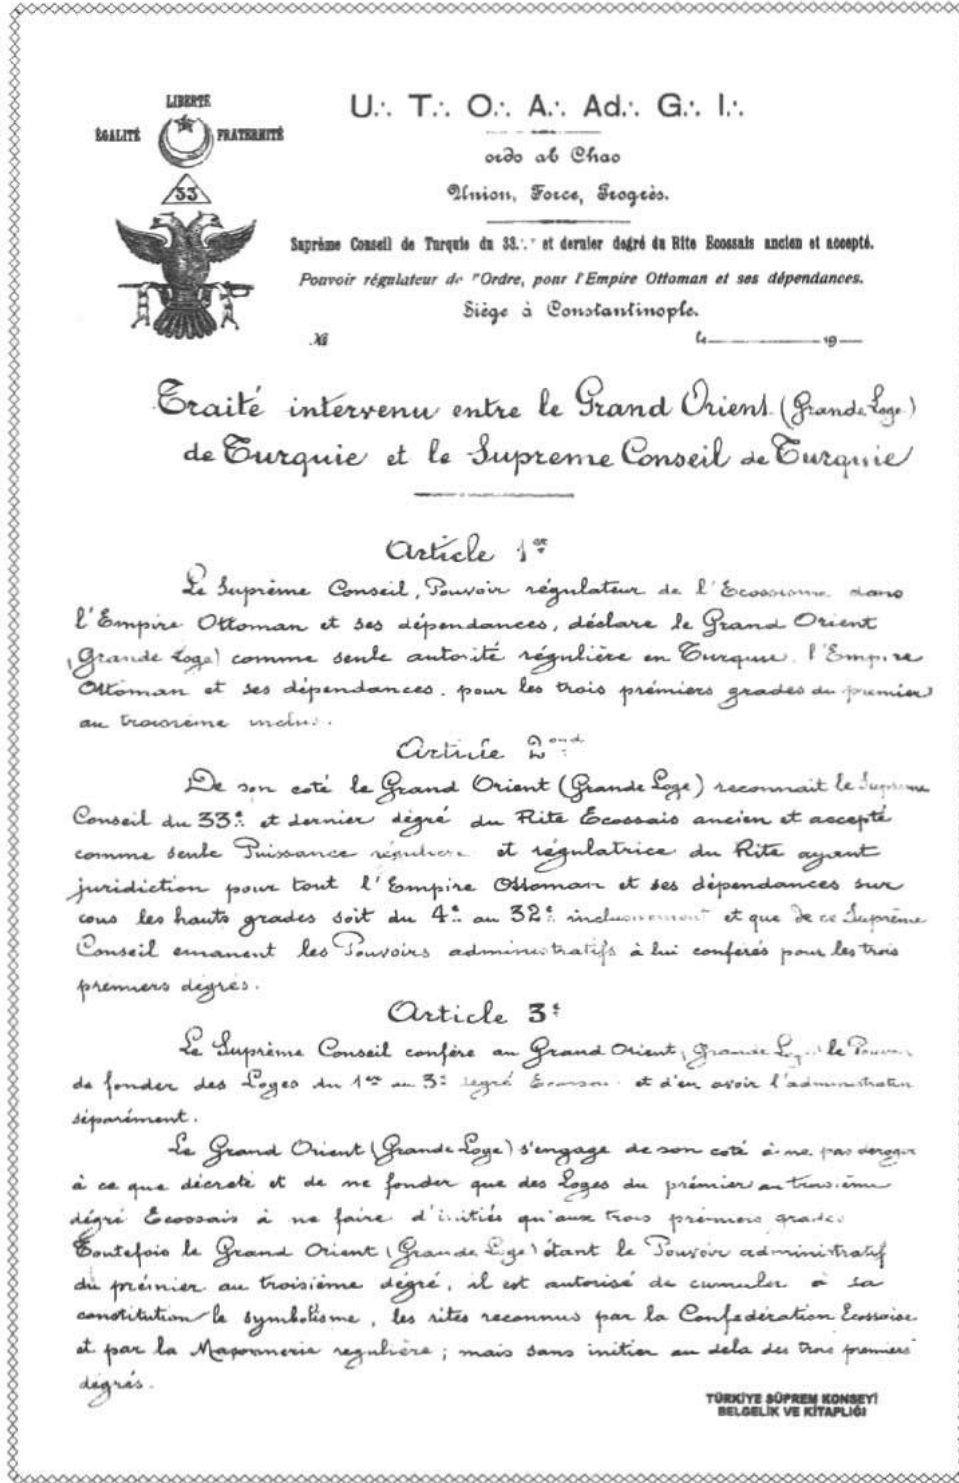 LIBERTE
ÉGALITÉ FRATERNITÉ
33
U∴ T∴ O∴ A∴ Ad∴ G∴ I∴
ordo ab Chao
Union, Force, Progrès.
Suprême Conseil de Turquie du 33∴ et dernier degré du Rite Ecossais ancien et accepté.
Pouvoir régulateur de l'Ordre, pour l'Empire Ottoman et ses dépendances.
Siège à Constantinople.
№ le 19
Traité intervenu entre le Grand Orient (Grande Loge)
de Turquie et le Suprème Conseil de Turquie
Article 1er
Le Suprème Conseil, Pouvoir régulateur de l'Ecossisme dans
l'Empire Ottoman et ses dépendances, déclare le Grand Orient
(Grande Loge) comme seule autorité régulière en Turquie, l'Empire
Ottoman et ses dépendances, pour les trois prémiers grades du premier
au troisième inclus.
Article 2ond
De son coté le Grand Orient (Grande Loge) reconnait le Suprème
Conseil du 33e et dernier dégré du Rite Ecossais ancien et accepté
comme seule Puissance régulière et régulatrice du Rite ayant
juridiction pour tout l'Empire Ottoman et ses dépendances sur
tous les hauts grades soit du 4e au 32e inclusivement et que de ce Suprème
Conseil emanent les Pouvoirs administratifs à lui conférés pour les trois
premiers dégrés.
Article 3e
Le Suprème Conseil confère au Grand Orient (Grande Loge) le Pouvoir
de fonder des Loges du 1er au 3e dégré Ecossais et d'en avoir l'administration
séparément.
Le Grand Orient (Grande Loge) s'engage de son coté à ne pas deroger
à ce que décreté et de ne fonder que des Loges du prémier au troisième
dégré Ecossais à ne faire d'initiés qu'aux trois prémiers grades
Toutefois le Grand Orient (Grande Loge) étant le Pouvoir administratif
du prémier au troisième dégré, il est autorisé de cumuler à sa
constitution le symbolisme, les rites reconnus par la Confedération Ecossaise
et par la Maçonnerie regulière ; mais sans initier au dela des trois premiers
dégrés.
TÜRKİYE SÜPREM KONSEYİ
BELGELİK VE KİTAPLIĞI